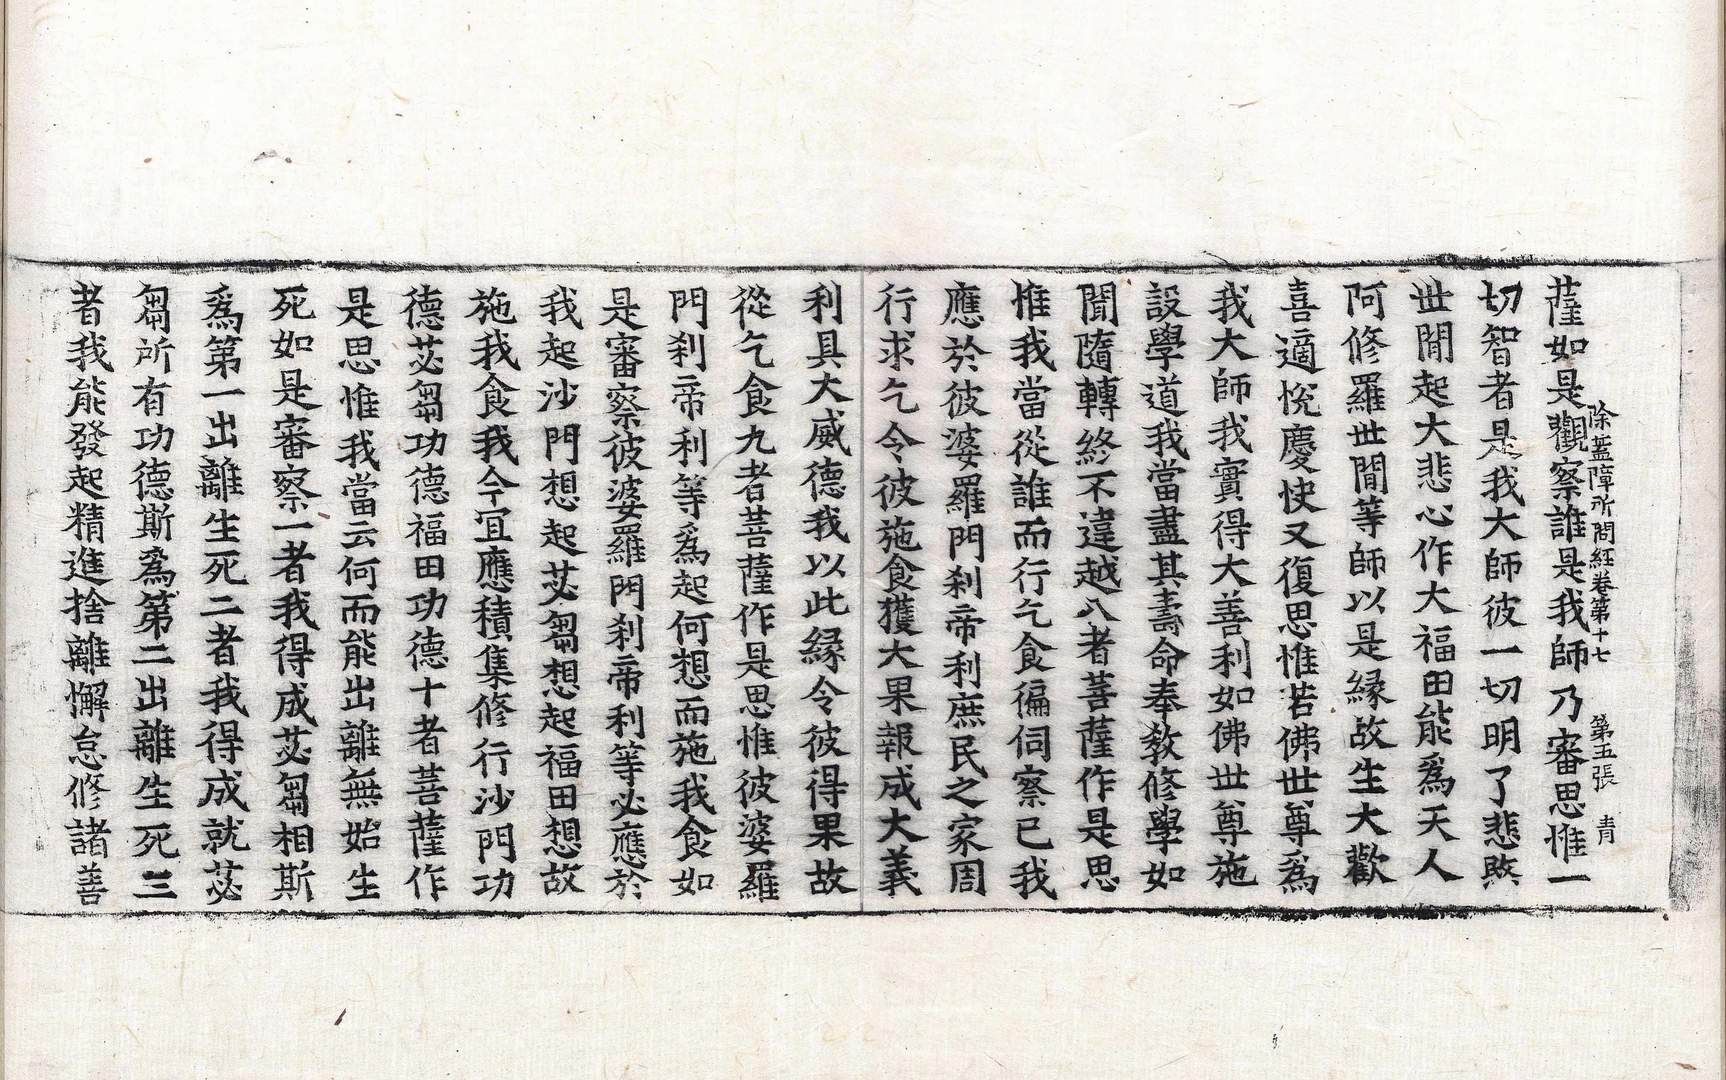 除蓋障所問經卷第十七　第五張　青
薩如是觀察誰是我師乃審思惟一
切智者是我大師彼一切明了悲愍
世間起大悲心作大福田能爲天人
阿修羅世間等師以是緣故生大歡
喜適悅慶快又復思惟若佛世尊爲
我大師我實得大善利如佛世尊施
設學道我當盡其壽命奉教修學如
聞隨轉終不違越八者菩薩作是思
惟我當從誰而行乞食徧伺察已我
應於彼婆羅門刹帝利庶民之家周
行求乞令彼施食獲大果報成大義
利具大威德我以此緣令彼得果故
從乞食九者菩薩作是思惟彼婆羅
門刹帝利等爲起何想而施我食如
是審察彼婆羅門刹帝利等必應於
我起沙門想起苾芻想起福田想故
施我食我今宜應積集修行沙門功
德苾芻功德福田功德十者菩薩作
是思惟我當云何而能出離無始生
死如是審察一者我得成苾芻相斯
爲第一出離生死二者我得成就苾
芻所有功德斯爲第二出離生死三
者我能發起精進捨離懈怠修諸善